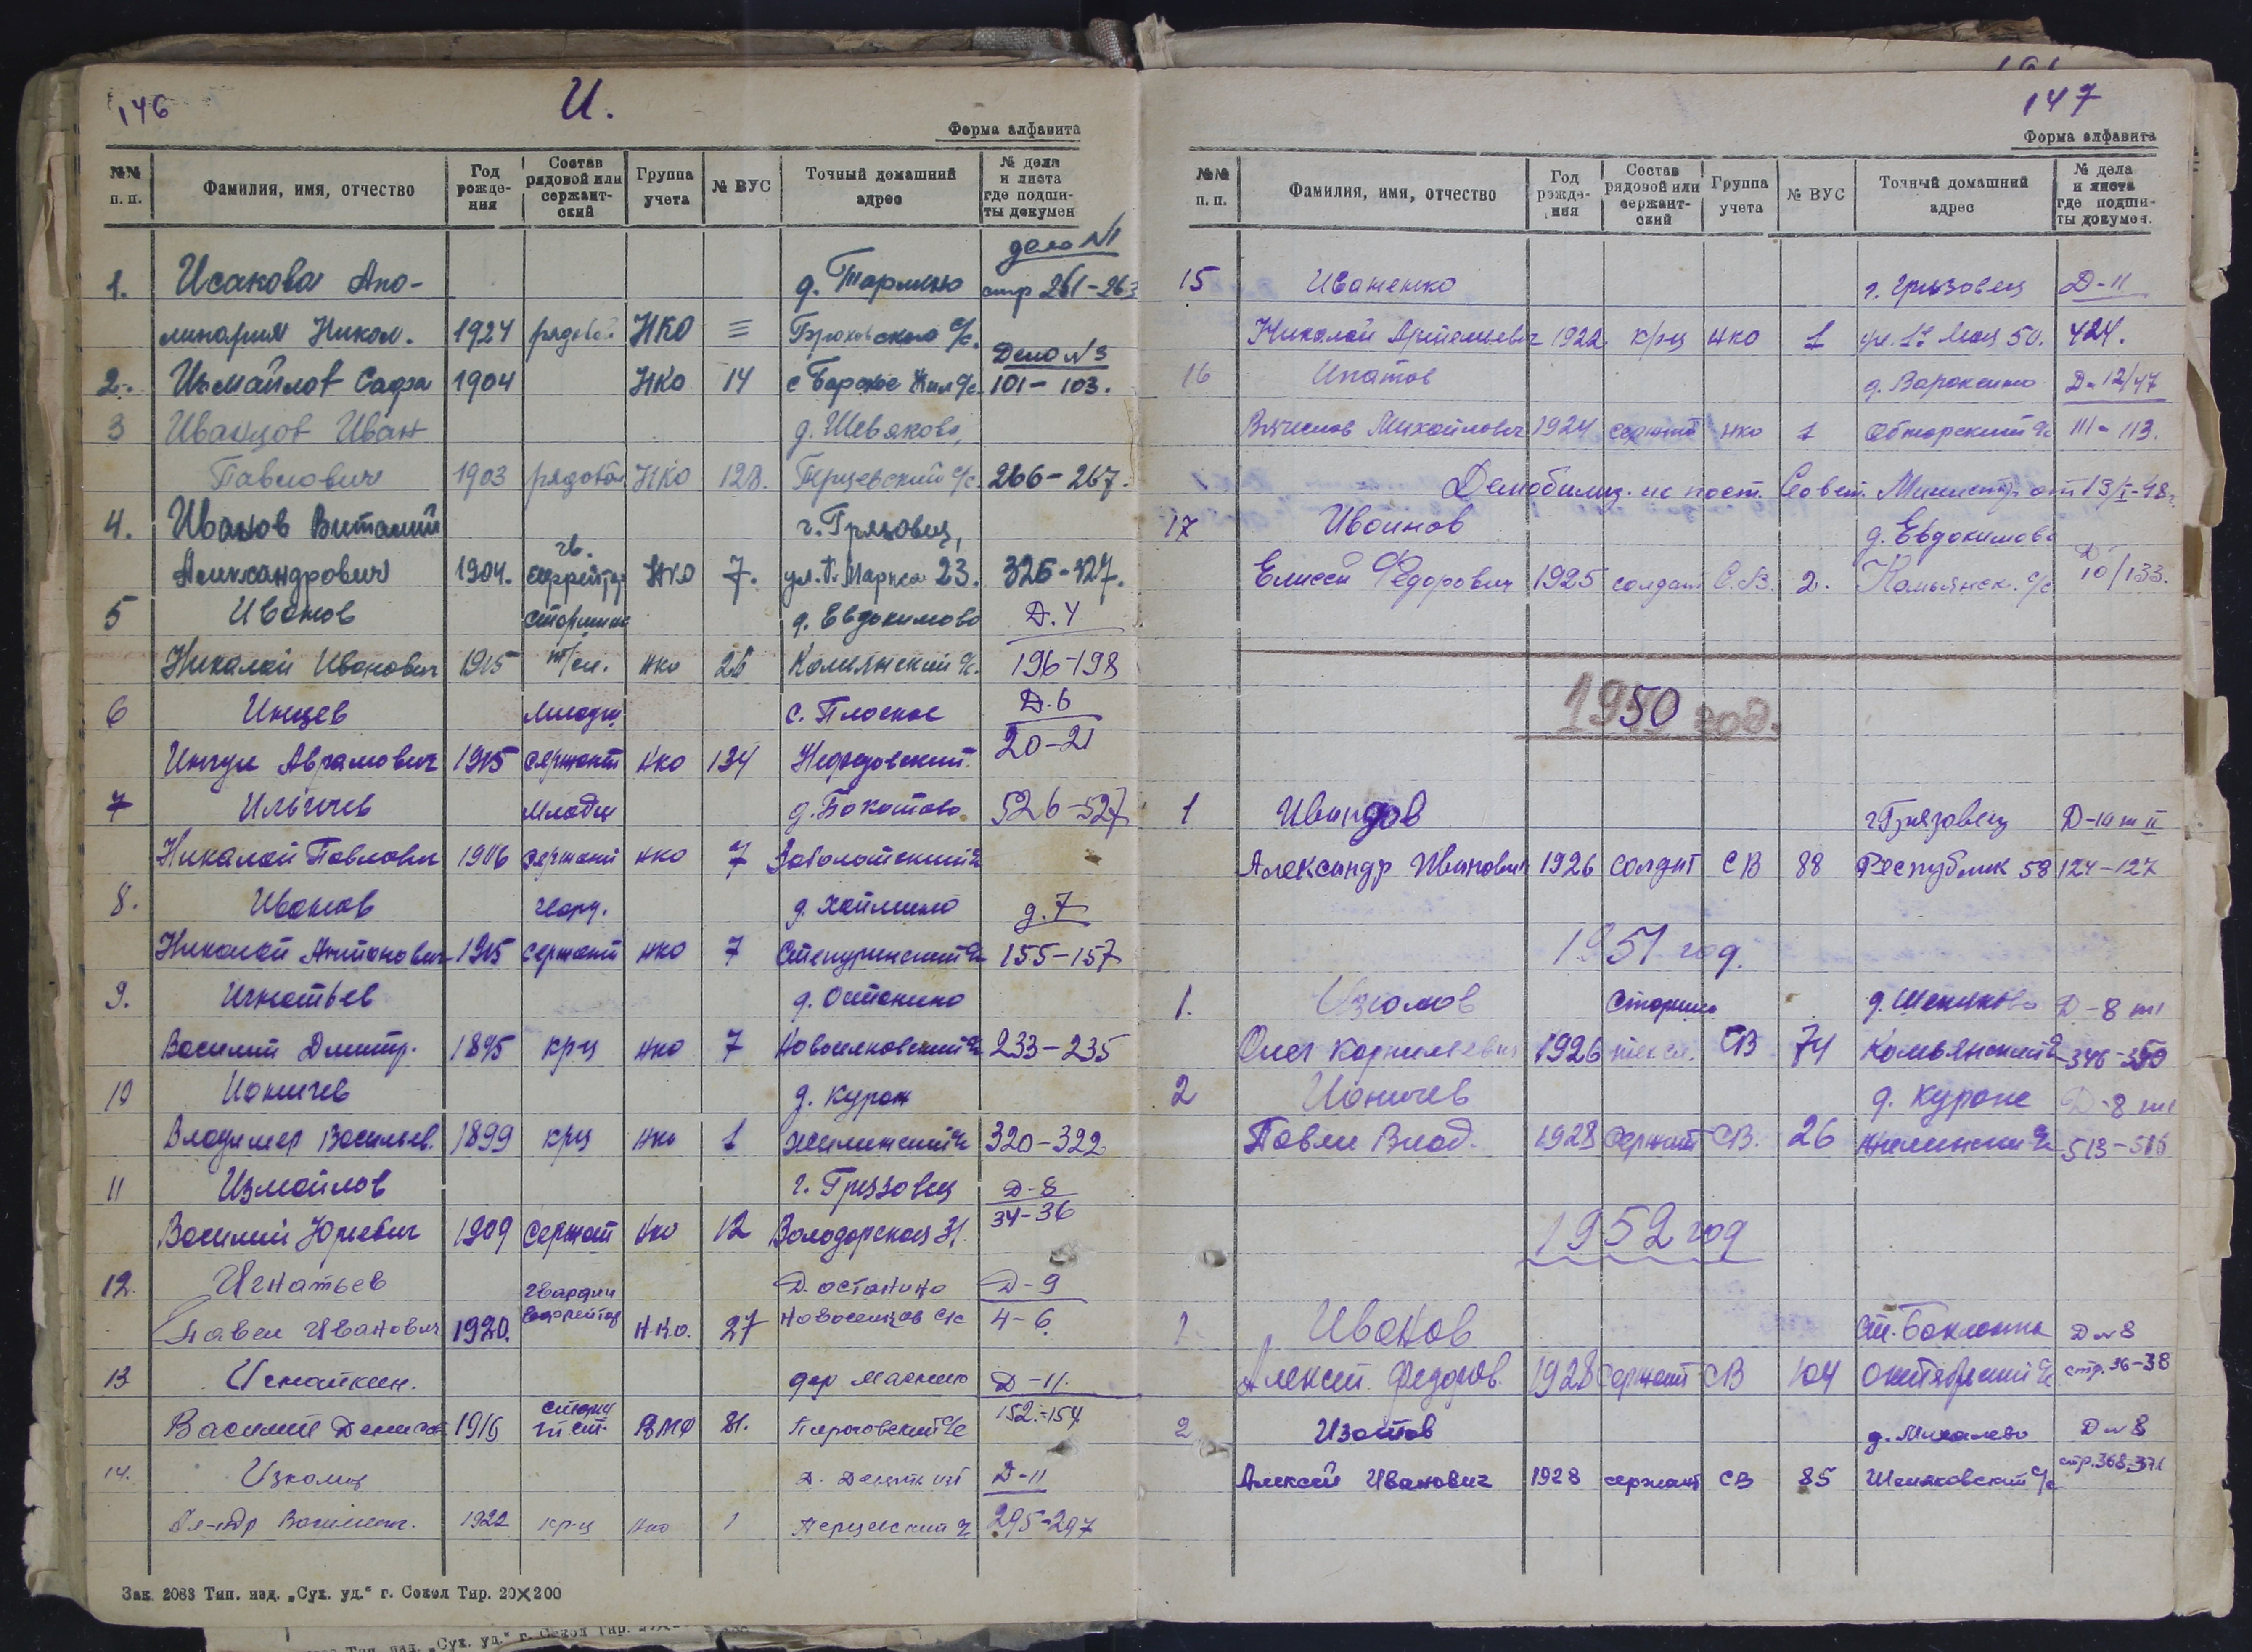 146
И.
Форма алфавита
№№ п. п. Фамилия, имя, отчество Год рожде- ния Состав рядовой или сержант- ский Группа учета № ВУС Точный домашний адрес № дела и листа где подши- ты докумен
дело №1
1. Исакова Апо- д. стр 261-263
линария Никол. 1924 рядовой НКО ≡ с/с.
Дело №3
2. Измайлов Сафа 1904 НКО 14 с 101-103.
3 Иванцов Иван д. Шевяково,
Павлович 1903 рядовой НКО 128. Перцевский с/с 266-267.
4. Иванов Виталий г. Грязовец,
Александрович 1904. гв. ефрейтор НКО 7. ул. К. Маркса 23. 326-327.
5 Иванов старшина д. Евдокимово Д. 4
Николай Иванович 1915 т/сл. нко 26 Комьянский с/с. 196-198
6 Инцев Младш. с. Плоское Д. 6
Аврамович 1915 сержант нко 134 20-21
7 Ильичев Младш 526-527
Николай Павлович 1906 сержант нко 7
8. Иванов гвард. д. 7
Николай Антонович 1915 сержант нко 7 Степуринский с/с 155-157
9. Игнатьев д. Останино
Василий Дмитр. 1895 кр-ц нко 7 Новоселковский с/с 233-235
10 Ионичев д. Курон
Владимер Васильев. 1899 крц нко 1 Жилинский с/с 320-322
11 Измайлов г. Грязовец Д-8
Василий Юрьевич 1909 Сержант нко 12 Володарская 31. 34-36
12. Игнатьев гвардии Д. останино Д-9
Павел Иванович 1920. ефрейтор Н.К.О. 27 Новоселков с/с 4-6
13 дер Д-11.
Василий 1916 ВМФ 81. 152-154
14. Д. Д-11
Ал-ндр 1922 кр-ц нко 1 Перцевский с/с 295-297
Зак 2083 Тип. изд. „Сух. уд.“ г. Сокол Тир. 20×200
147
Форма алфавита
№№ п. п. Фамилия, имя, отчество Год рожде- ния Состав рядовой или сержант- ский Группа учета № ВУС Точный домашний адрес № дела и листа где подши- ты докумен.
15 Иваненко г. Грязовец Д-11
Николай Артемьевич 1922 кр-ц нко 1 ул. 1е Мая 50. 424.
16 Ипатов д. Д-12/47
Вячеслав Михайлович 1924 сержант нко 1 Обнорский с/с 111-113.
Демобилиз. по пост. Совет. Министр от 13/I-48г.
17 Ивоинов д. Евдокимово Д
Елисей Федорович 1925 солдат С.В. 2. Комьянск. с/с 10/133.
1950 год.
1 Иванцов г Грязовец Д-10 т II
Александр Иванович 1926 солдат СВ 88 Республик 58 124-127
1951 год.
1. Старшин д. Д-8 т1
Олег Корнильевич 1926 СВ 74 Комьянский с/с
2 Ионичев д. Куроне Д-8 т1
Павел Влад. 1928 сержант СВ. 26 Жилинский с/с
1952 год
1. Иванов ст. Д №8
Алексей Федоров. 1928 Сержант СВ 104 Октябрьский с/с стр. 36-38
2 Изотов д. Михалево Д №8
Алексей Иванович 1928 сержант СВ 85 с/с стр. 368-371